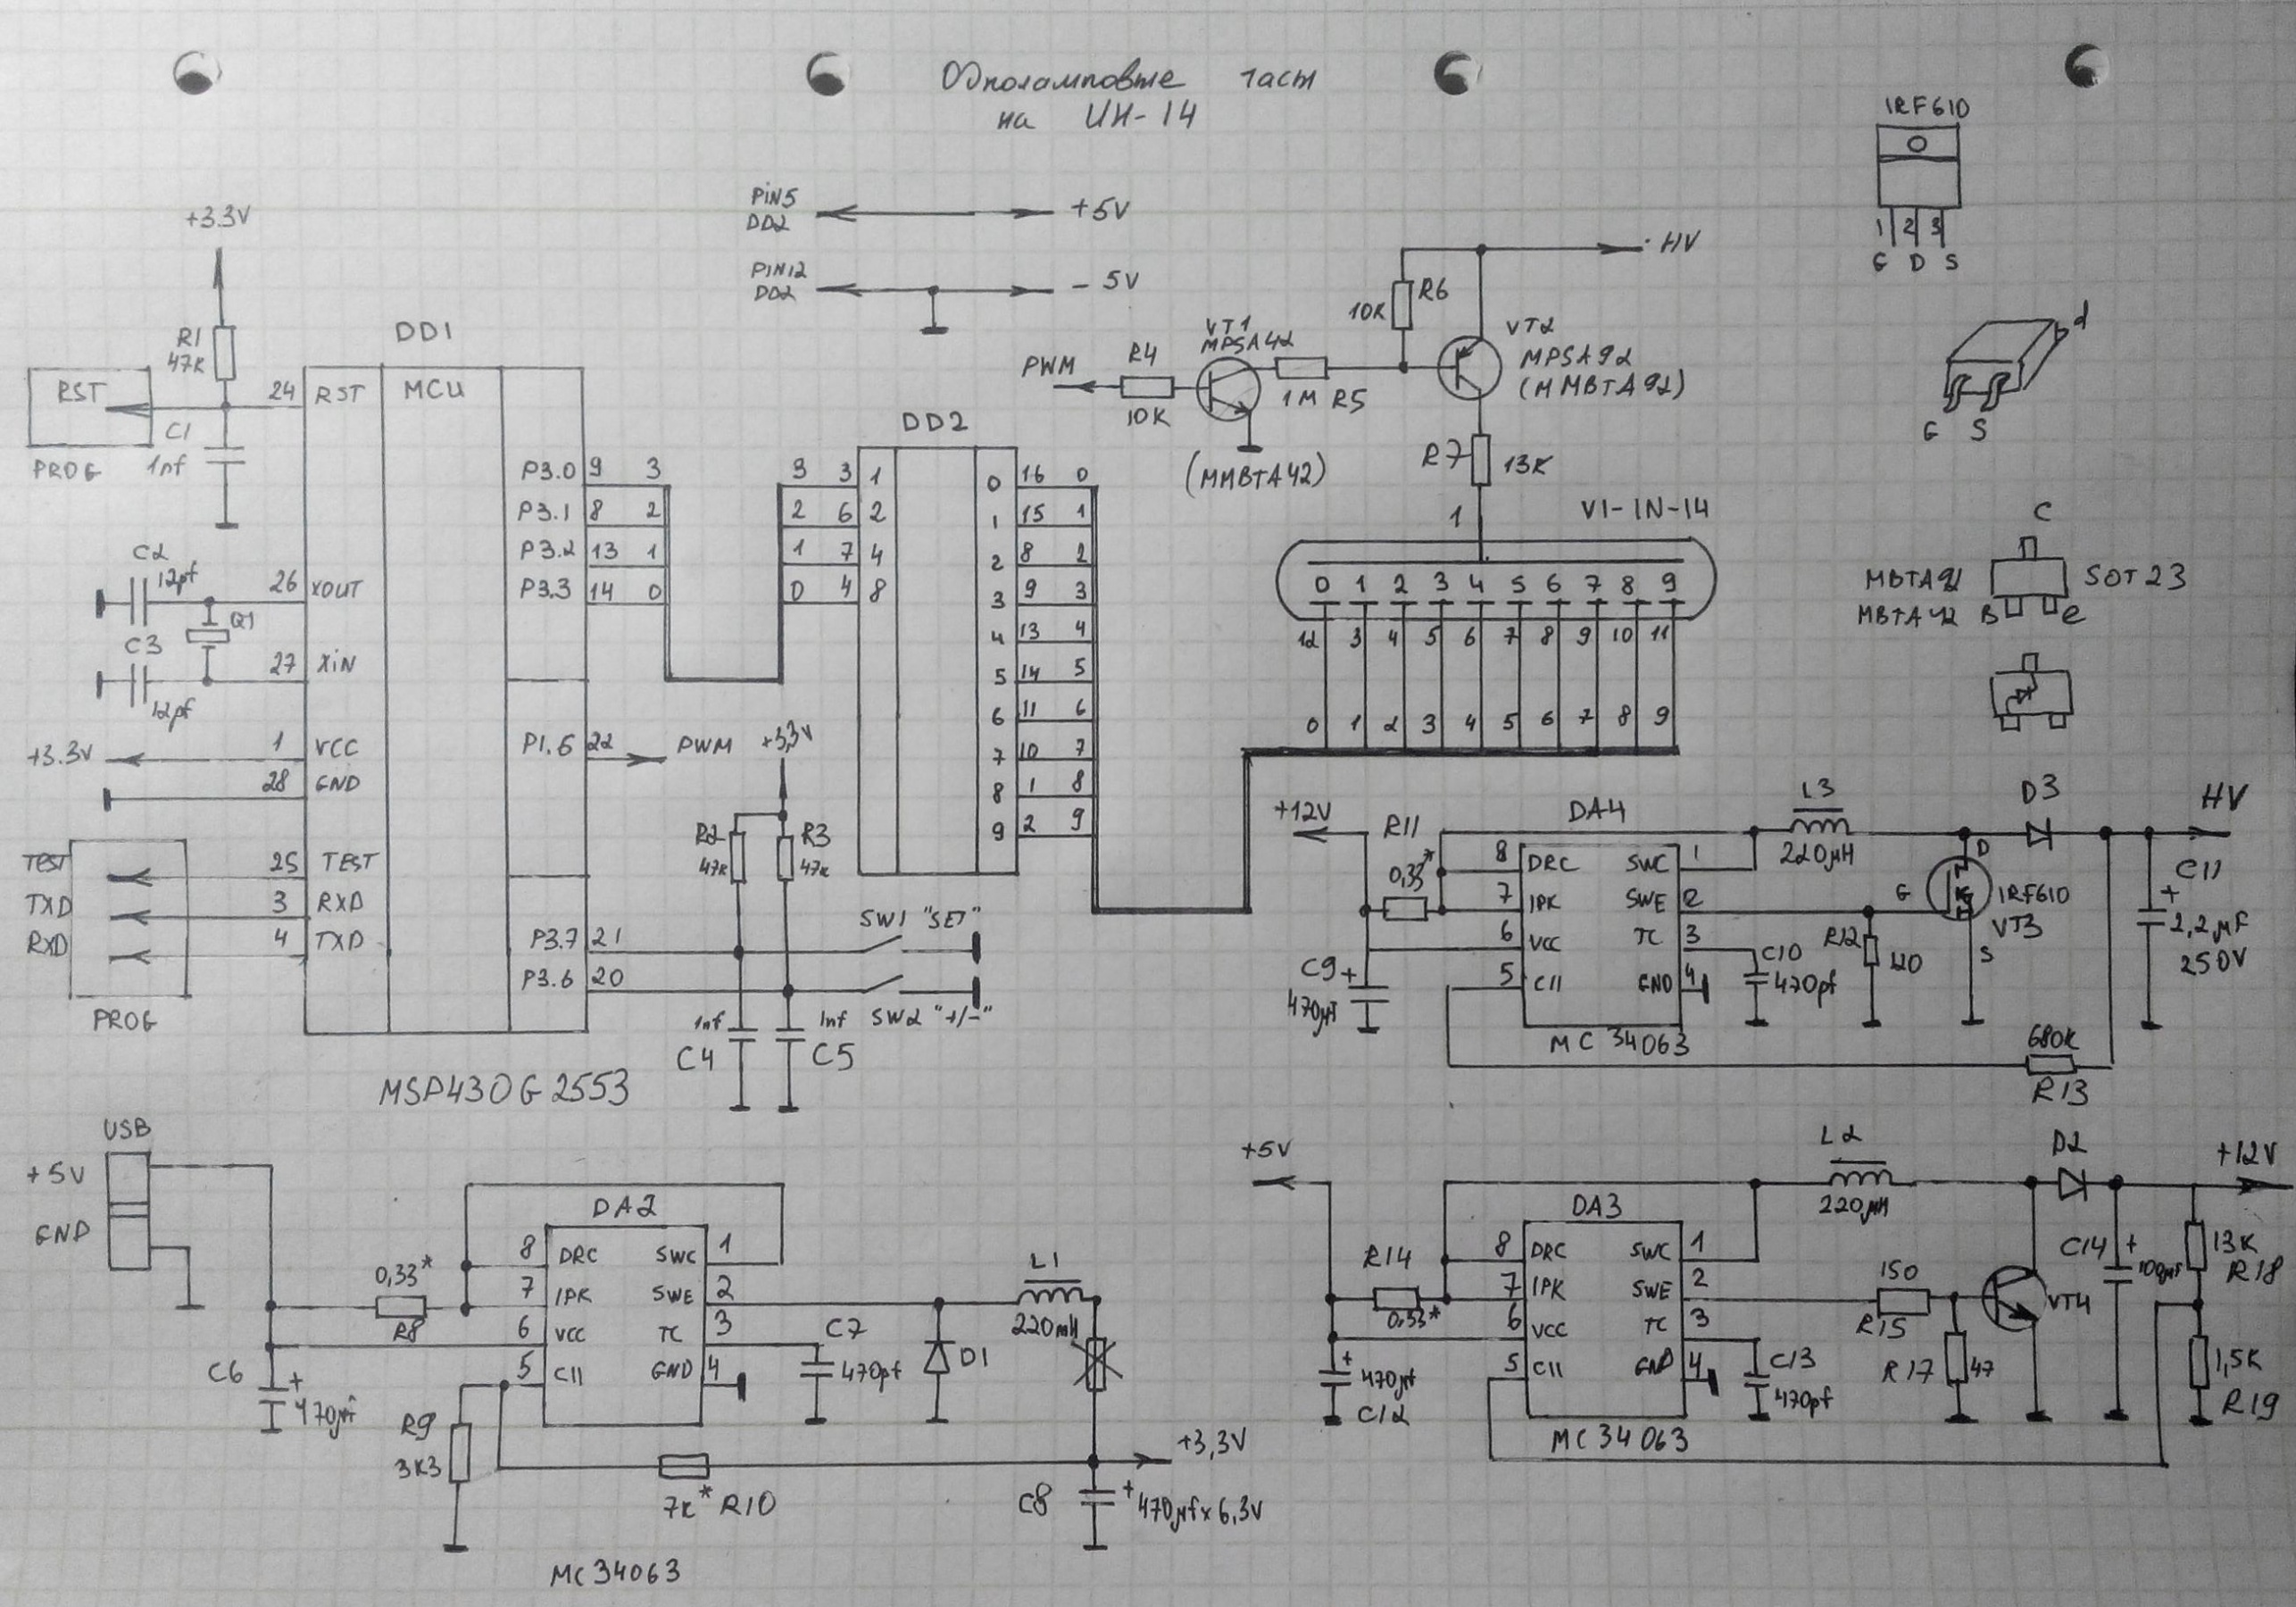 Одноламповые часы
на ИН-14
IRF610
1 2 3
G D S
d
G S
C
MBTA92
MBTA42
SOT23
B e
PiN5
DD2
+5V
PiN12
DD2
- 5V
+3.3V
R1
47K
RST
PROG
C1
1nf
24 RST
DD1
MCU
C2
12pf
26 XOUT
Q1
C3
12pf
27 XiN
+3.3V
1 VCC
28 GND
TEST 25 TEST
TXD 3 RXD
RXD 4 TXD
PROG
P3.0 9 3
P3.1 8 2
P3.2 13 1
P3.3 14 0
P1.6 22 PWM
P3.7 21
P3.6 20
MSP430G2553
+3,3V
R2
47K
R3
47K
SW1 "SET"
SW2 "+/-"
1nf
C4
1nf
C5
DD2
3 3 1
2 6 2
1 7 4
0 4 8
0 16 0
1 15 1
2 8 2
3 9 3
4 13 4
5 14 5
6 11 6
7 10 7
8 1 8
9 2 9
PWM
R4
10K
VT1
MPSA42
(MMBTA42)
1M R5
10K
R6
HV
VT2
MPSA92
(MMBTA92)
R7
13K
1
V1-IN-14
0 1 2 3 4 5 6 7 8 9
12 3 4 5 6 7 8 9 10 11
0 1 2 3 4 5 6 7 8 9
+12V
R11
0,33*
C9 +
470μf
DA4
8 DRC SWC 1
7 IPK SWE 2
6 VCC TC 3
5 CII GND 4
MC 34063
L3
220μH
C10
470pf
R12
120
D3
D
G
S
IRF610
VT3
HV
C11
+
2,2μF
250V
680K
R13
USB
+5V
GND
C6
+
470μf
0,33*
R8
DA2
8 DRC SWC 1
7 IPK SWE 2
6 VCC TC 3
5 CII GND 4
R9
3K3
7K* R10
MC34063
C7
470pf
D1
L1
220mH
+3,3V
C8
+
470μf x 6,3V
+5V
R14
0.33*
+
470μf
C12
DA3
8 DRC SWC 1
7 IPK SWE 2
6 VCC TC 3
5 CII GND 4
MC34063
L2
220μH
C13
470pf
150
R15
R17
47
VT4
D2
C14 +
100μf
+12V
13K
R18
1,5K
R19